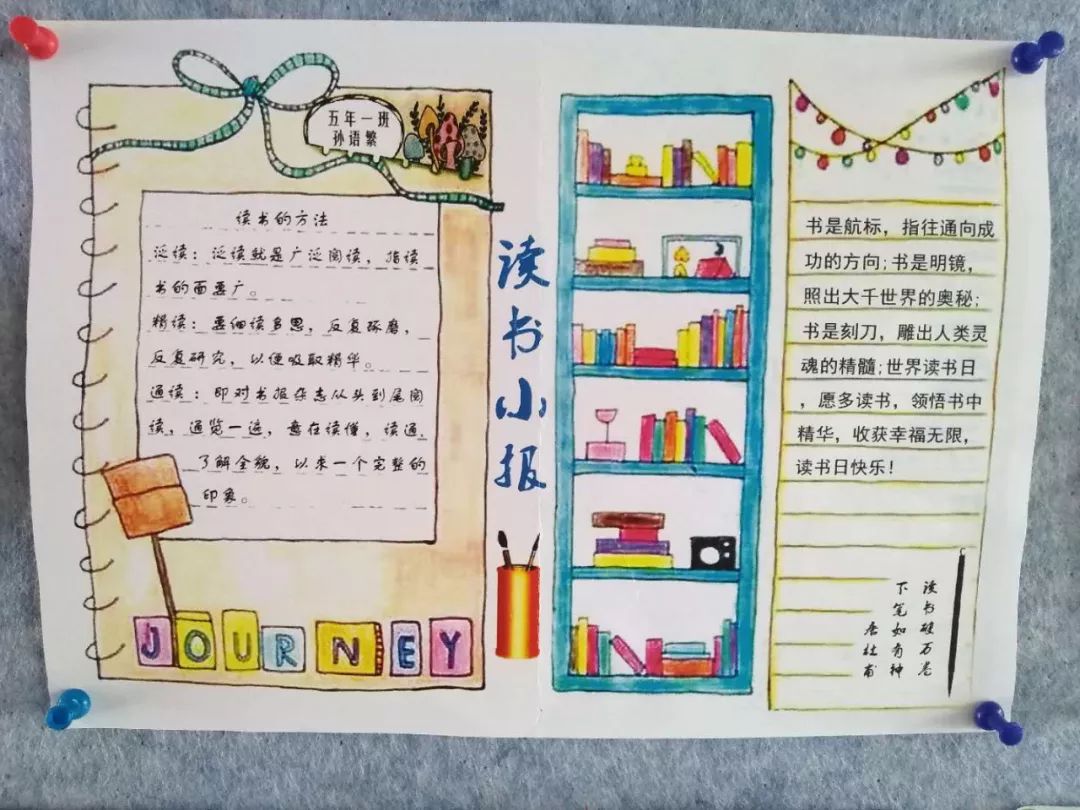 五年一班
孙语繁
读书的方法
泛读：泛读就是广泛阅读，指读
书的面要广。
精读：要细读多思，反复琢磨，
反复研究，以便吸取精华。
通读：即对书报杂志从头到尾阅
读，通览一遍，意在读懂，读通，
了解全貌，以求一个完整的
印象。
JOURNEY
读书小报
书是航标，指往通向成
功的方向;书是明镜，
照出大千世界的奥秘;
书是刻刀，雕出人类灵
魂的精髓;世界读书日
，愿多读书，领悟书中
精华，收获幸福无限，
读书日快乐！
读书破万卷
下笔如有神
唐杜甫